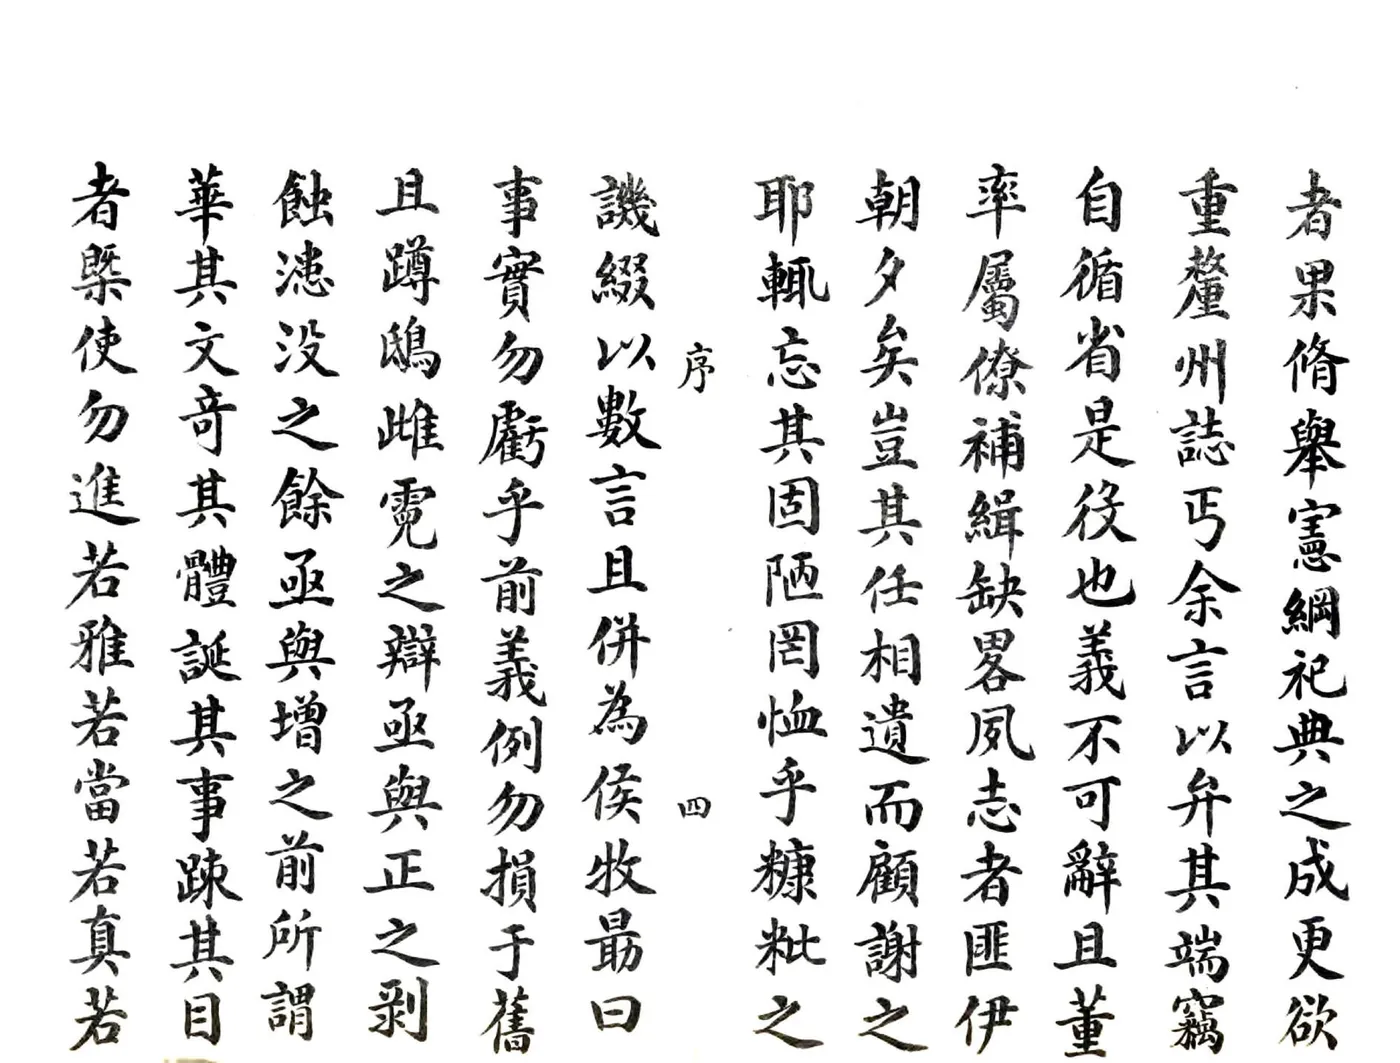 者果脩舉憲綱祀典之成更欲
重釐州誌丐余言以弁其端竊
自循省是役也義不可辭且董
率屬僚補緝缺畧夙志者匪伊
朝夕矣豈其任相遺而顧謝之
耶輒忘其固陋罔恤乎糠粃之
序 四
譏綴以數言且併為侯牧勗曰
事實勿虧乎前義例勿損于舊
且蹲鴟雌霓之辯亟與正之剥
蝕漶没之餘亟與增之前所謂
華其文奇其體誕其事踈其目
者槩使勿進若雅若當若真若